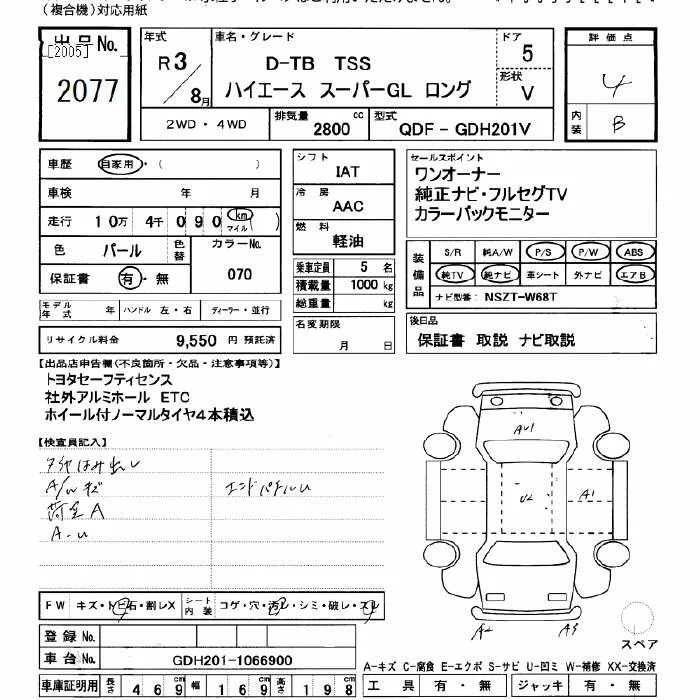 (複合機)対応用紙
出品No.
[2005]
2077
年式
R3/8月
車名・グレード
D-TB TSS
ハイエース スーパーGL ロング
ドア
5
形状
V
評価点
4
内装
B
2WD・4WD
排気量
2800 cc
型式
QDF-GDH201V
車歴 自家用・( )
車検 年 月
走行 10万 4千 090 km マイル ( )
色 パール 色替
カラーNo.
070
保証書 有・無
モデル年式 年 ハンドル 左・右 ディーラー・並行
リサイクル料金 9,550 円 預託済
シフト
IAT
冷房
AAC
燃料
軽油
乗車定員 5 名
積載量 1000 kg
総重量 kg
名変期限
月 日
セールスポイント
ワンオーナー
純正ナビ・フルセグTV
カラーバックモニター
装備品
S/R 純A/W P/S P/W ABS
純TV 純ナビ 革シート 外ナビ エアB
ナビ型番: NSZT-W68T
後日品
保証書 取説 ナビ取説
【出品店申告欄(不良箇所・欠品・注意事項等)】
トヨタセーフティセンス
社外アルミホール ETC
ホイール付ノーマルタイヤ4本積込
【検査員記入】
タイヤはみ出し
A/Wキズ
荷室A
A-U
エンドパネルU
AU1
U2
A1
A2
A3
スペア
FW キズ・トビ石・割レX
シート内装 コゲ・穴・汚レ・シミ・破レ・スレ
登録No.
車台No. GDH201-1066900
車庫証明用 長さ 469 cm 幅 169 cm 高さ 198 cm
A-キズ C-腐食 E-エクボ S-サビ U-凹ミ W-補修 XX-交換済
工具 有・無 ジャッキ 有・無